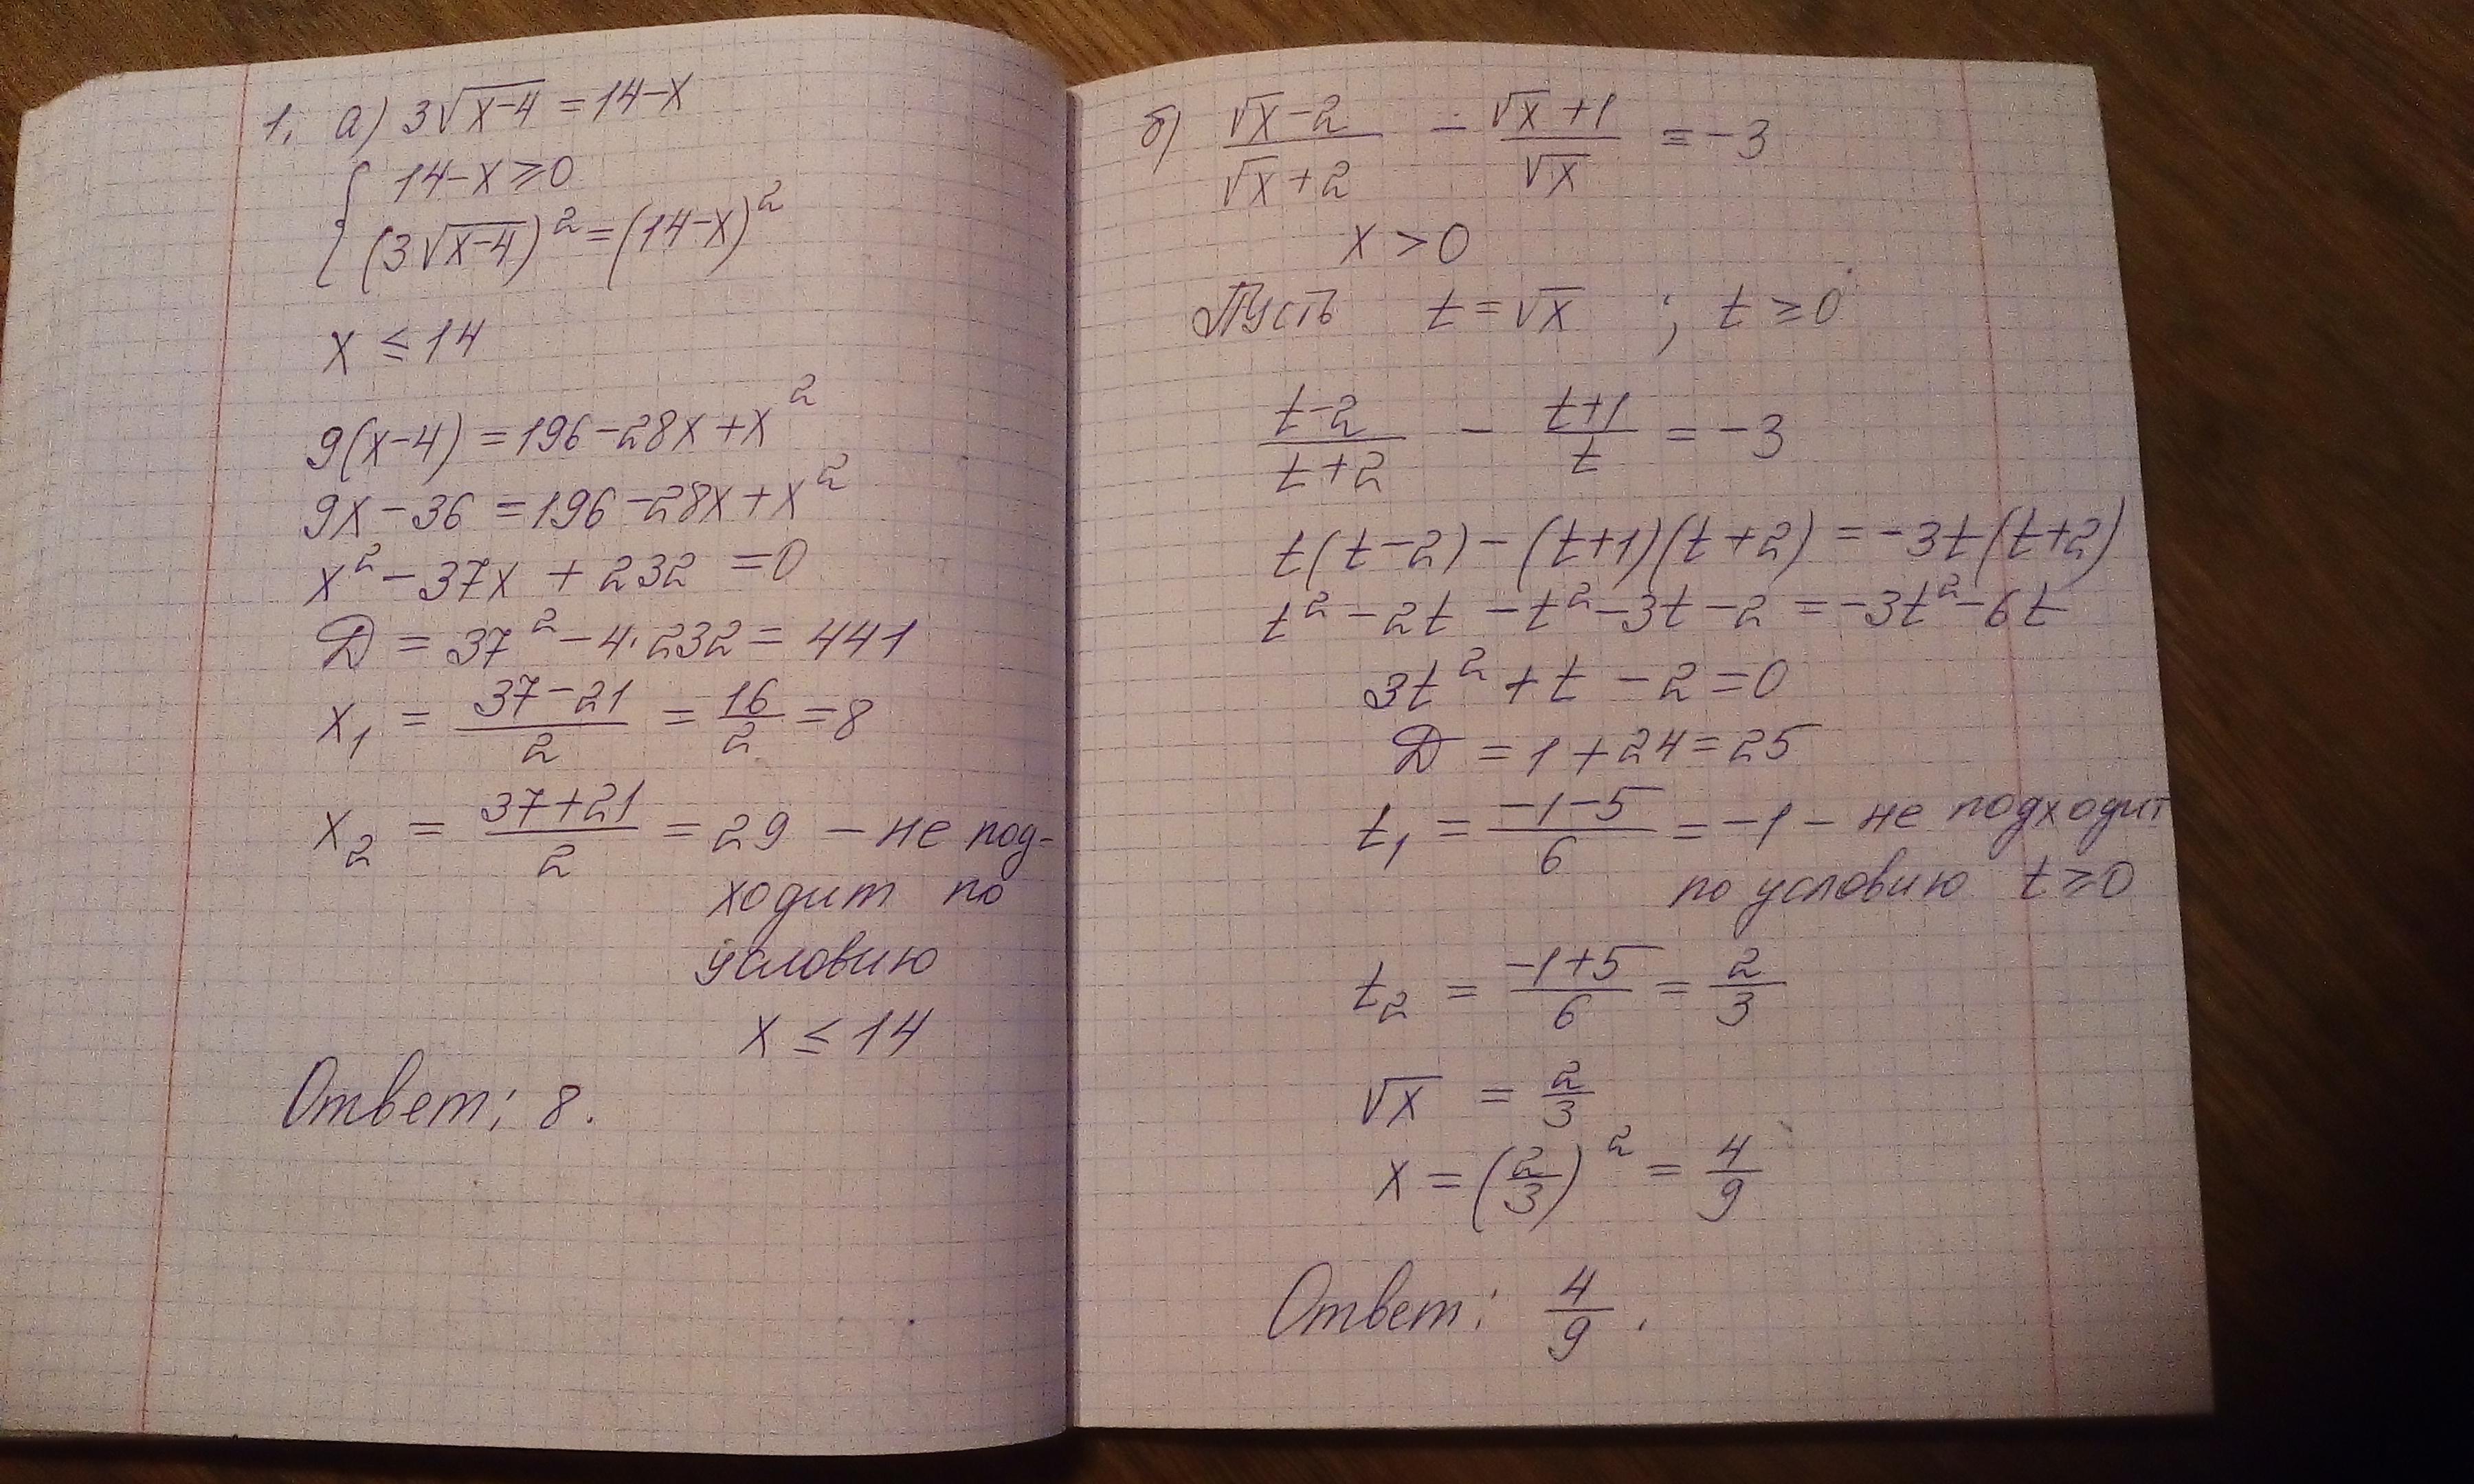 1. а) 3√(x-4) = 14-x
{ 14-x ≥ 0
(3√(x-4))² = (14-x)²
x ≤ 14
9(x-4) = 196-28x+x²
9x-36 = 196-28x+x²
x²-37x+232 = 0
D = 37²-4·232 = 441
x₁ = (37-21)/2 = 16/2 = 8
x₂ = (37+21)/2 = 29 – не под-
ходит по
условию
x ≤ 14
Ответ: 8.
б) (√x-2)/(√x+2) - (√x+1)/√x = -3
x > 0
Пусть t = √x ; t ≥ 0
(t-2)/(t+2) - (t+1)/t = -3
t(t-2)-(t+1)(t+2) = -3t(t+2)
t²-2t-t²-3t-2 = -3t²-6t
3t²+t-2 = 0
D = 1+24 = 25
t₁ = (-1-5)/6 = -1 – не подходит
по условию t ≥ 0
t₂ = (-1+5)/6 = 2/3
√x = 2/3
x = (2/3)² = 4/9
Ответ: 4/9.